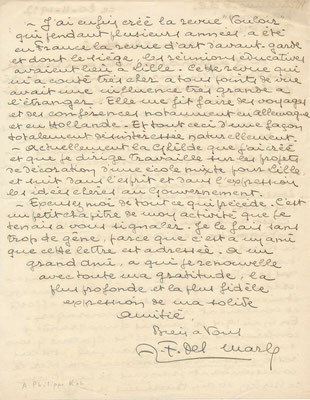 - J'ai enfin créé la revue Vouloir
qui pendant plusieurs années, a été
en France la revue d'art d'avant-garde
et dont le siège, les réunions éducatives
avaient lieu à Lille. Cette revue qui
m'a coûté très cher à tous points de vue
avait une influence très grande à
l'étranger. Elle me fit faire des voyages
et des conférences notamment en Allemagne
et en Hollande. Et tout ceci d'une façon
totalement désintéressée naturellement.
- Actuellement la Ghilde que j'ai créé
et que je dirige travaille sur les projets
de décoration d'une école mixte pour Lille
et suit dans l'esprit et dans l'expression
les idées chères au Gouvernement.
- Excusez moi de tout ce qui précède. C'est
un petit chapitre de mon activité que je
tenais à vous signaler. Je le fais sans
trop de gêne, parce que c'est à un ami
que cette lettre est adressée. À un
grand ami, à qui je renouvelle
avec toute ma gratitude, la
plus profonde et la plus fidèle
expression de ma solide
amitié.
Bien à Vous
A. F. Del Marle
A Philippe